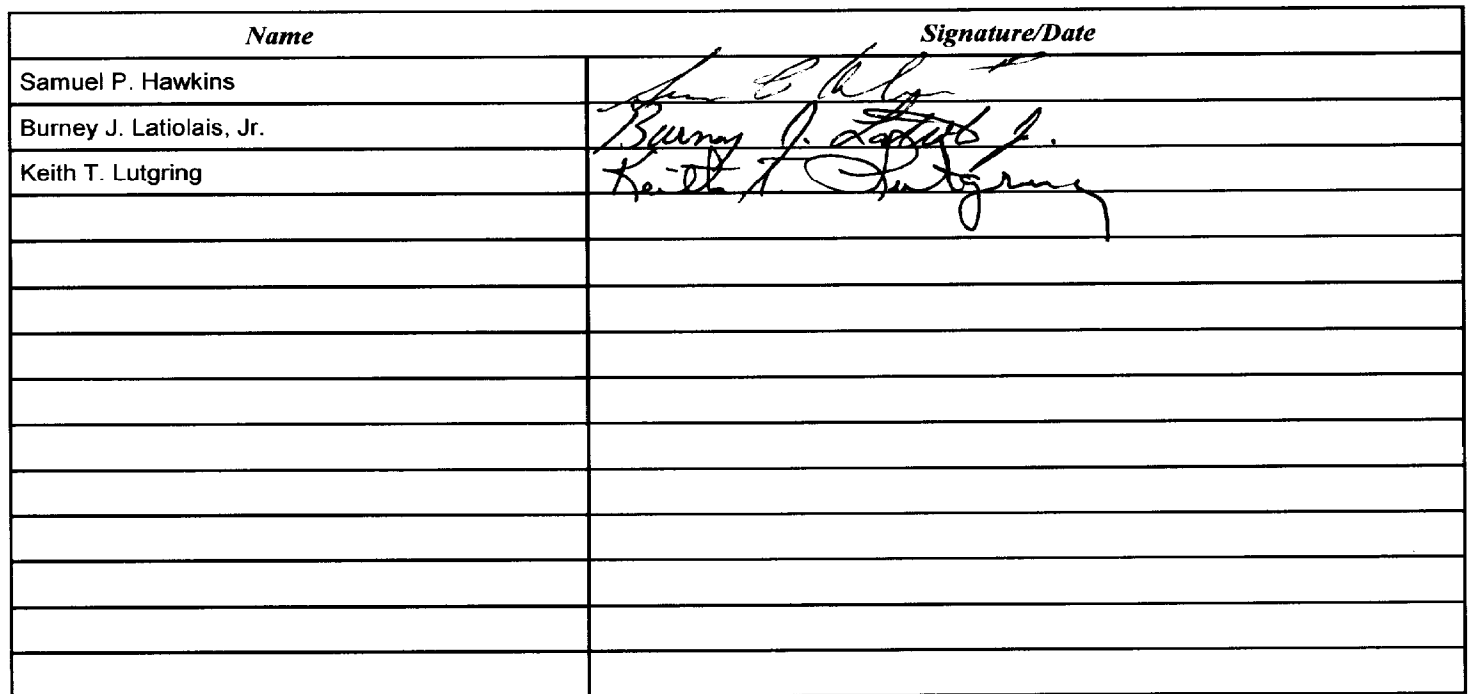 Name Signature/Date
Samuel P. Hawkins
Burney J. Latiolais, Jr. Burney J.
Keith T. Lutgring Keith T. Lutgring